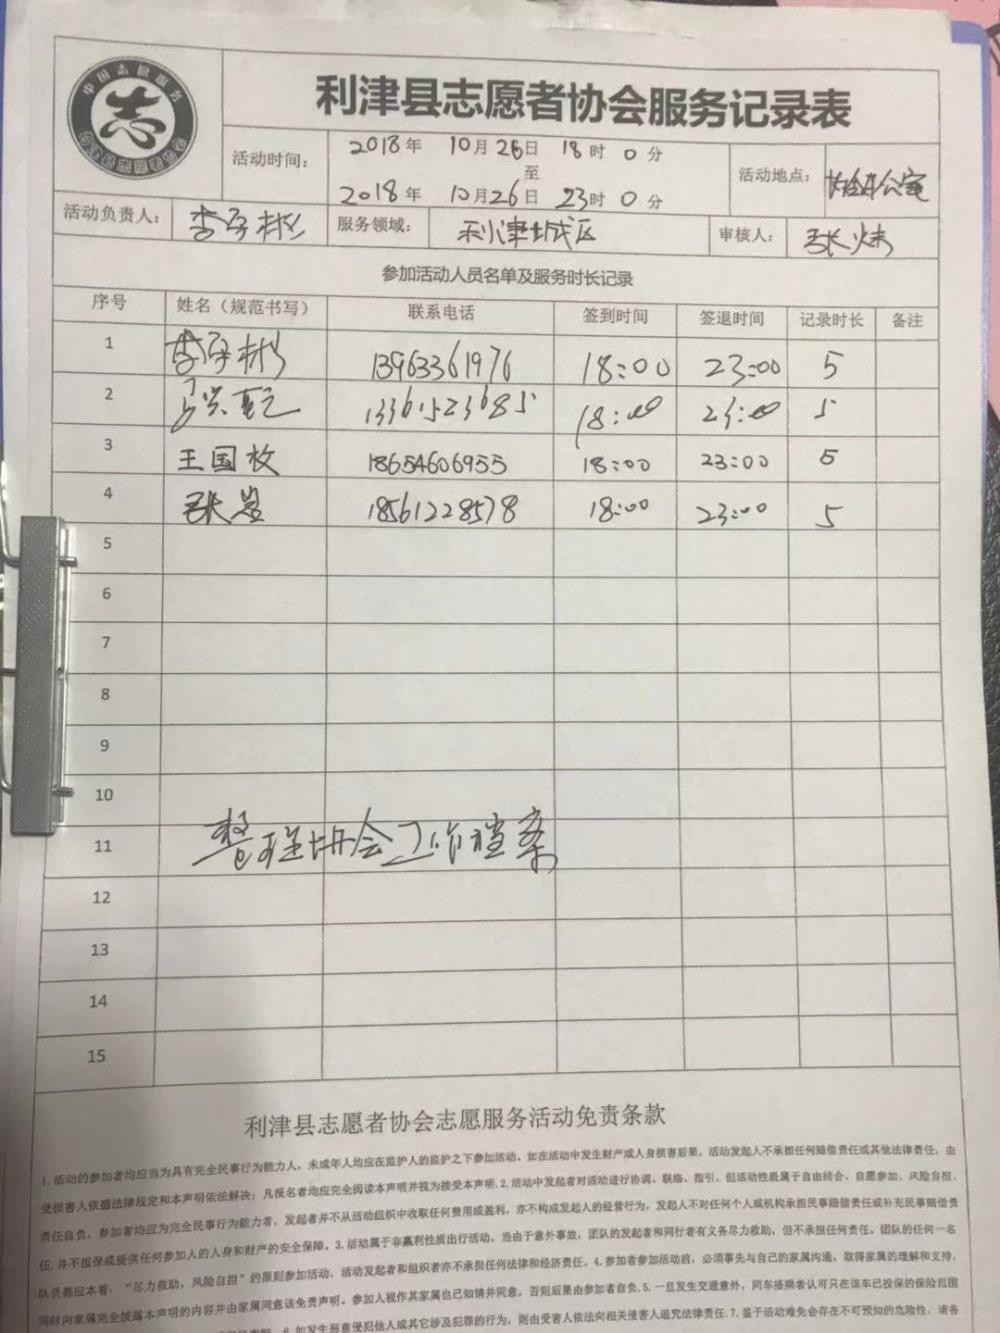 中国志愿服务
志
利津县志愿者协会服务记录表
活动时间： 2018年 10月26日 18时 0分
至
2018年 10月26日 23时 0分
活动地点： 协会办公室
活动负责人： 李学彬 服务领域： 利津城区 审核人： 张炜
参加活动人员名单及服务时长记录
序号 姓名（规范书写） 联系电话 签到时间 签退时间 记录时长 备注
1 李学彬 13963361976 18:00 23:00 5
2 13361523685 18:00 23:00 5
3 王国枚 18654606955 18:00 23:00 5
4 张岩 18561228578 18:00 23:00 5
5
6
7
8
9
10
11 整理协会工作档案
12
13
14
15
利津县志愿者协会志愿服务活动免责条款
1.活动的参加者均应当为具有完全民事行为能力人，未成年人均应在监护人的监护之下参加活动。如在活动中发生财产或人身损害后果，活动发起人不承担任何赔偿责任或其他法律责任，由
受损害人依据法律规定和本声明依法解决；凡报名者均应完全阅读本声明并视为接受本声明.2.活动中发起者对活动进行协调、联络、指引，但活动性质属于自由结合、自愿参加、风险自担、
责任自负，参加者均应为完全民事行为能力者，发起者并不从活动组织中收取任何费用或盈利，亦不构成发起人的经营行为，发起人不对任何个人或机构承担民事赔偿责任或补充民事赔偿责
任.并不担保或提供任何参加人的人身和财产的安全保障。3.活动属于非赢利性质出行活动。当由于意外事故，团队的发起者和同行者有义务尽力救助，但不承担任何责任。团队的任何一名
队员都应本着：“尽力救助、风险自担”的原则参加活动，活动发起者和组织者亦不承担任何法律和经济责任。4.参加者参加活动前，必须事先与自己的家属沟通，取得家属的理解和支持，
同时向家属完全披露本声明的内容并由家属同意该免责声明。参加人视作其家属也已知情并同意，否则后果由参加者自负.5.一旦发生交通意外，同车搭乘者认可只在该车已投保的保险范围
6.如发生恶意侵犯他人或其它涉及犯罪的行为，则由受害人依法向相关侵害人追究法律责任.7.鉴于活动难免会存在不可预知的危险性，请务